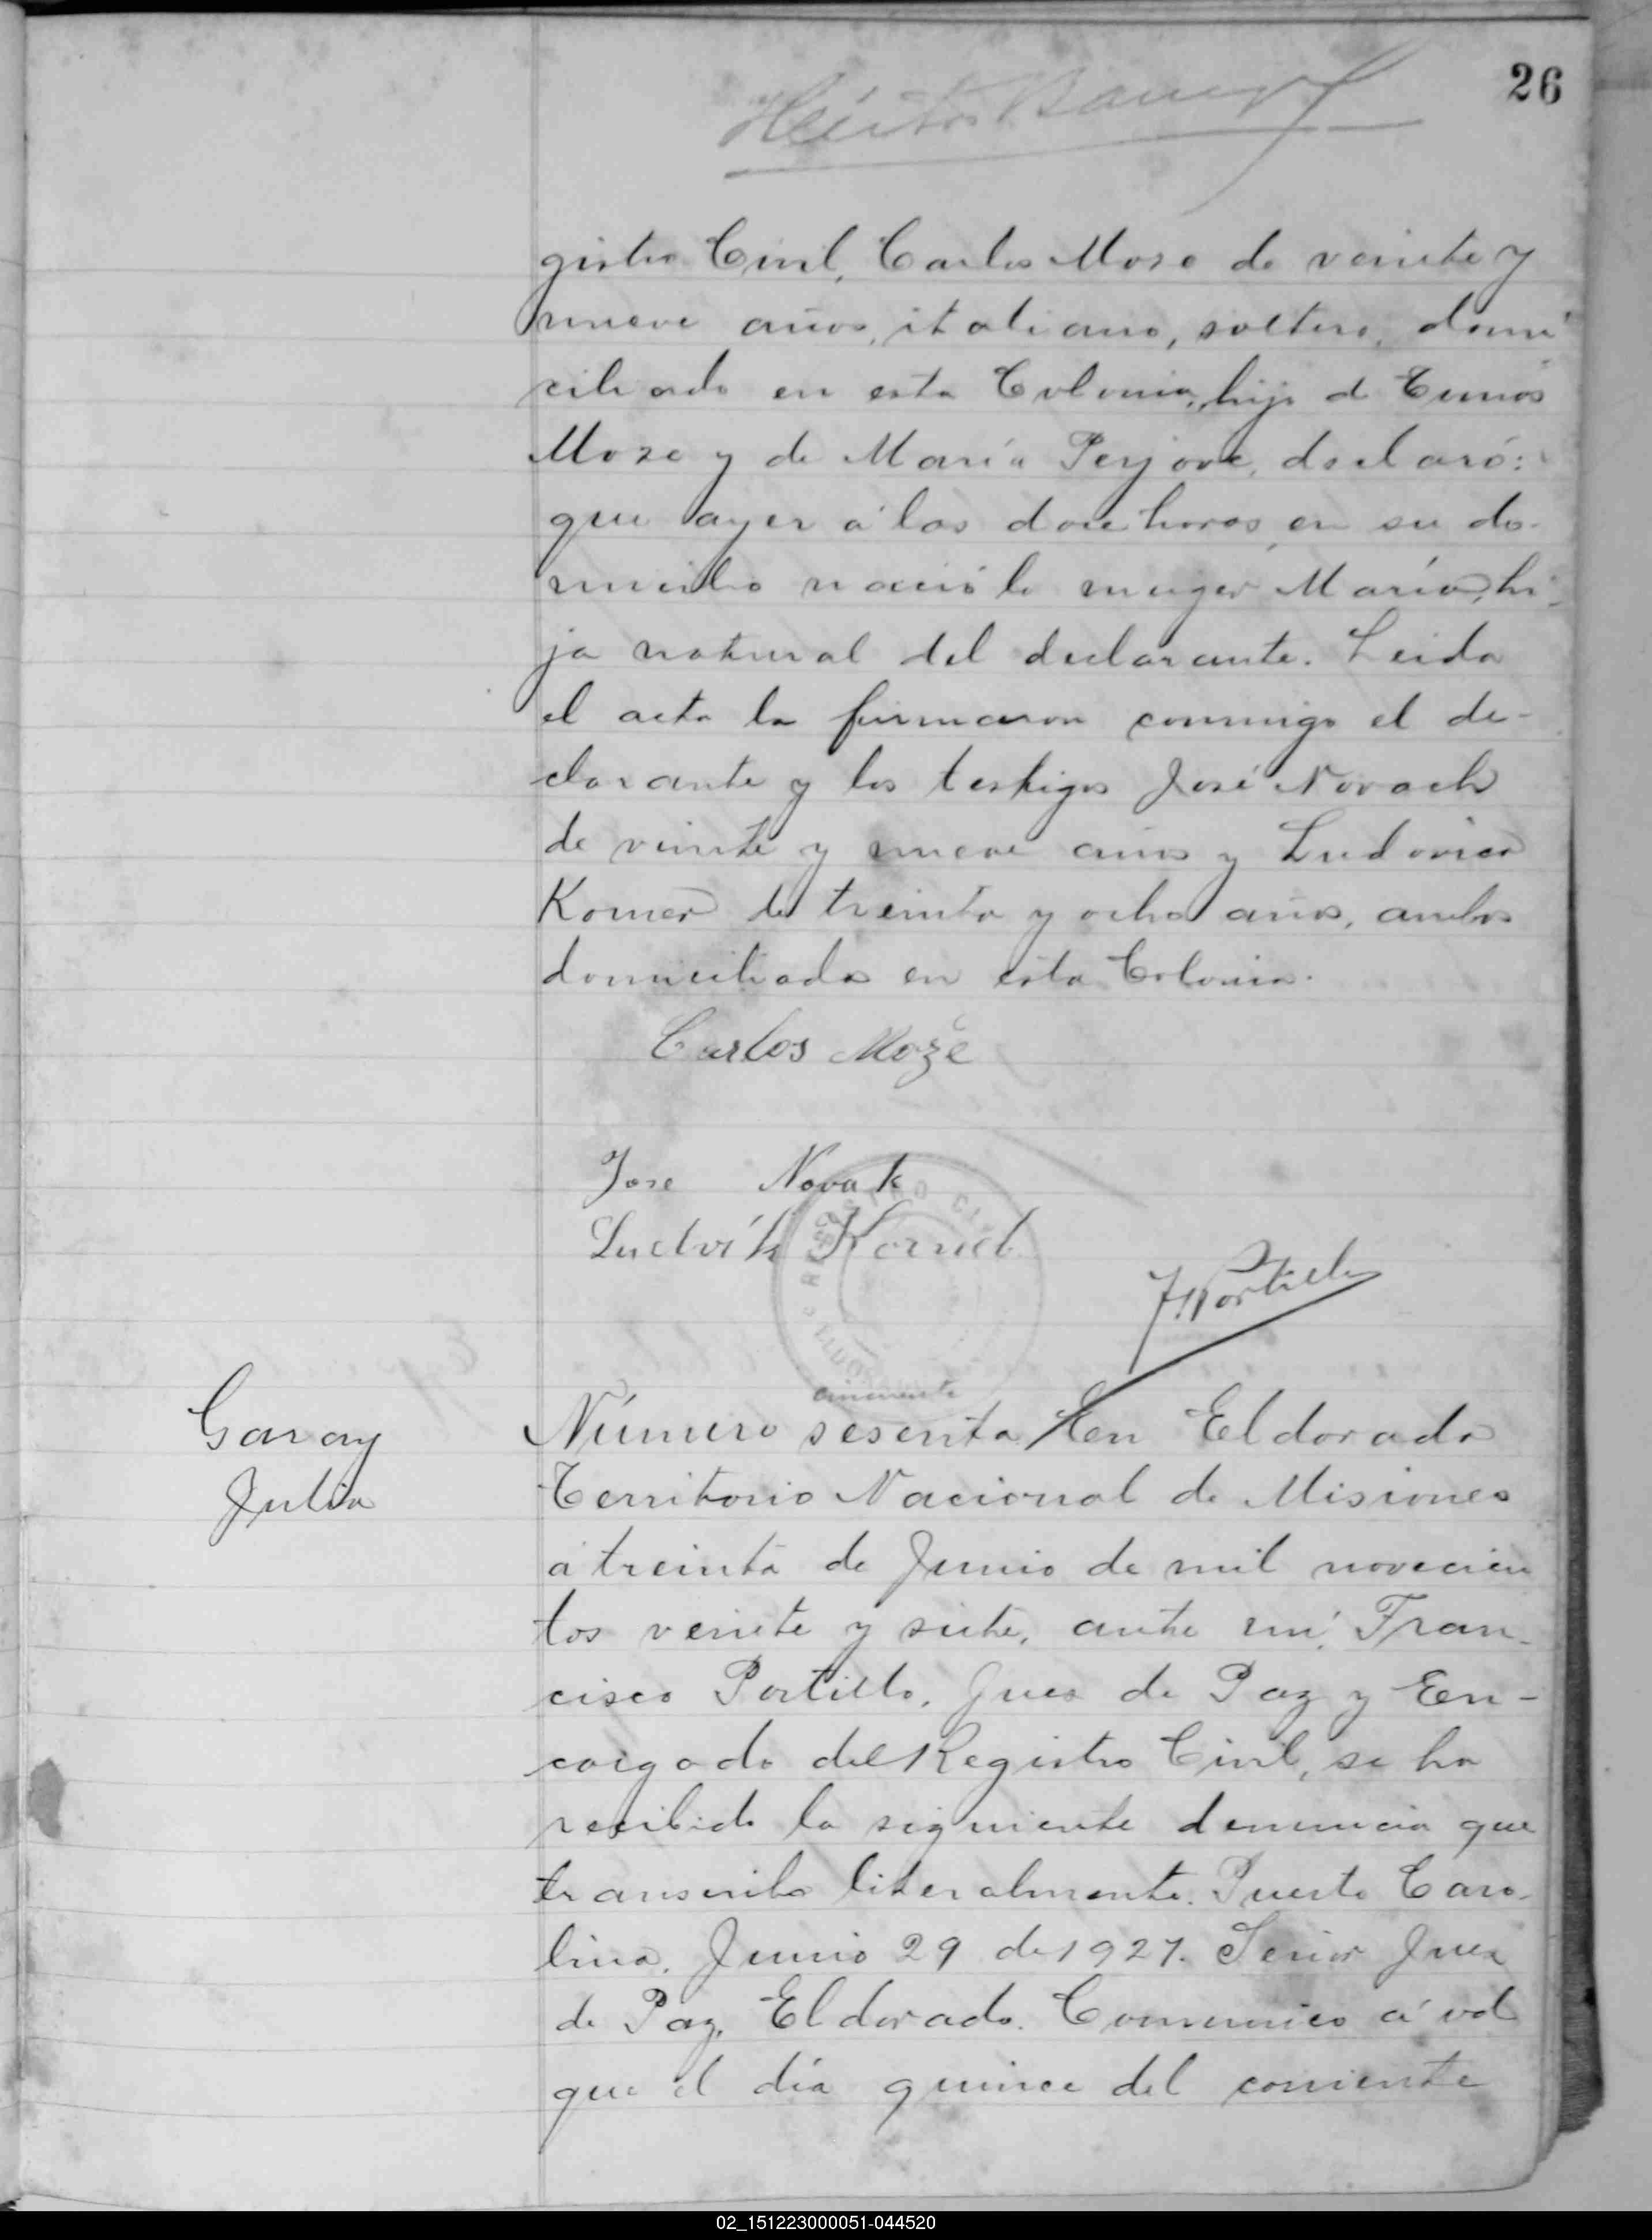 26
Héctor
gistro Civil, Carlos Moze de veinte y
nueve años, italiano, soltero, domi
ciliado en esta Colonia, hijo d
Moze y de María Perjove, declaró:
que ayer á las doce horas, en su do-
micilio nació la muger María, hi-
ja natural del declarante. Leida
el acta la firmaron conmigo el de-
clarante y los testigos José Novach
de veinte y nueve años y Ludovico
Komer de treinta y ocho años, ambos
domiciliados en esta Colonia.
Carlos Može
Jose Novak
Ludvík
REGISTRO CI
F. Portillo
cincuenta
Garay
Julia
Número sesenta En Eldorado
Territorio Nacional de Misiones
á treinta de Junio de mil novecien
tos veinte y siete, ante mí, Fran-
cisco Portillo, Juez de Paz y En-
cargado del Registro Civil, se ha
recibido la siguiente denuncia que
transcribo literalmente. Puerto Caro-
lina, Junio 29 de 1927. Señor Juez
de Paz, Eldorado. Comunico á vd
que el día quince del corriente
02_151223000051-044520